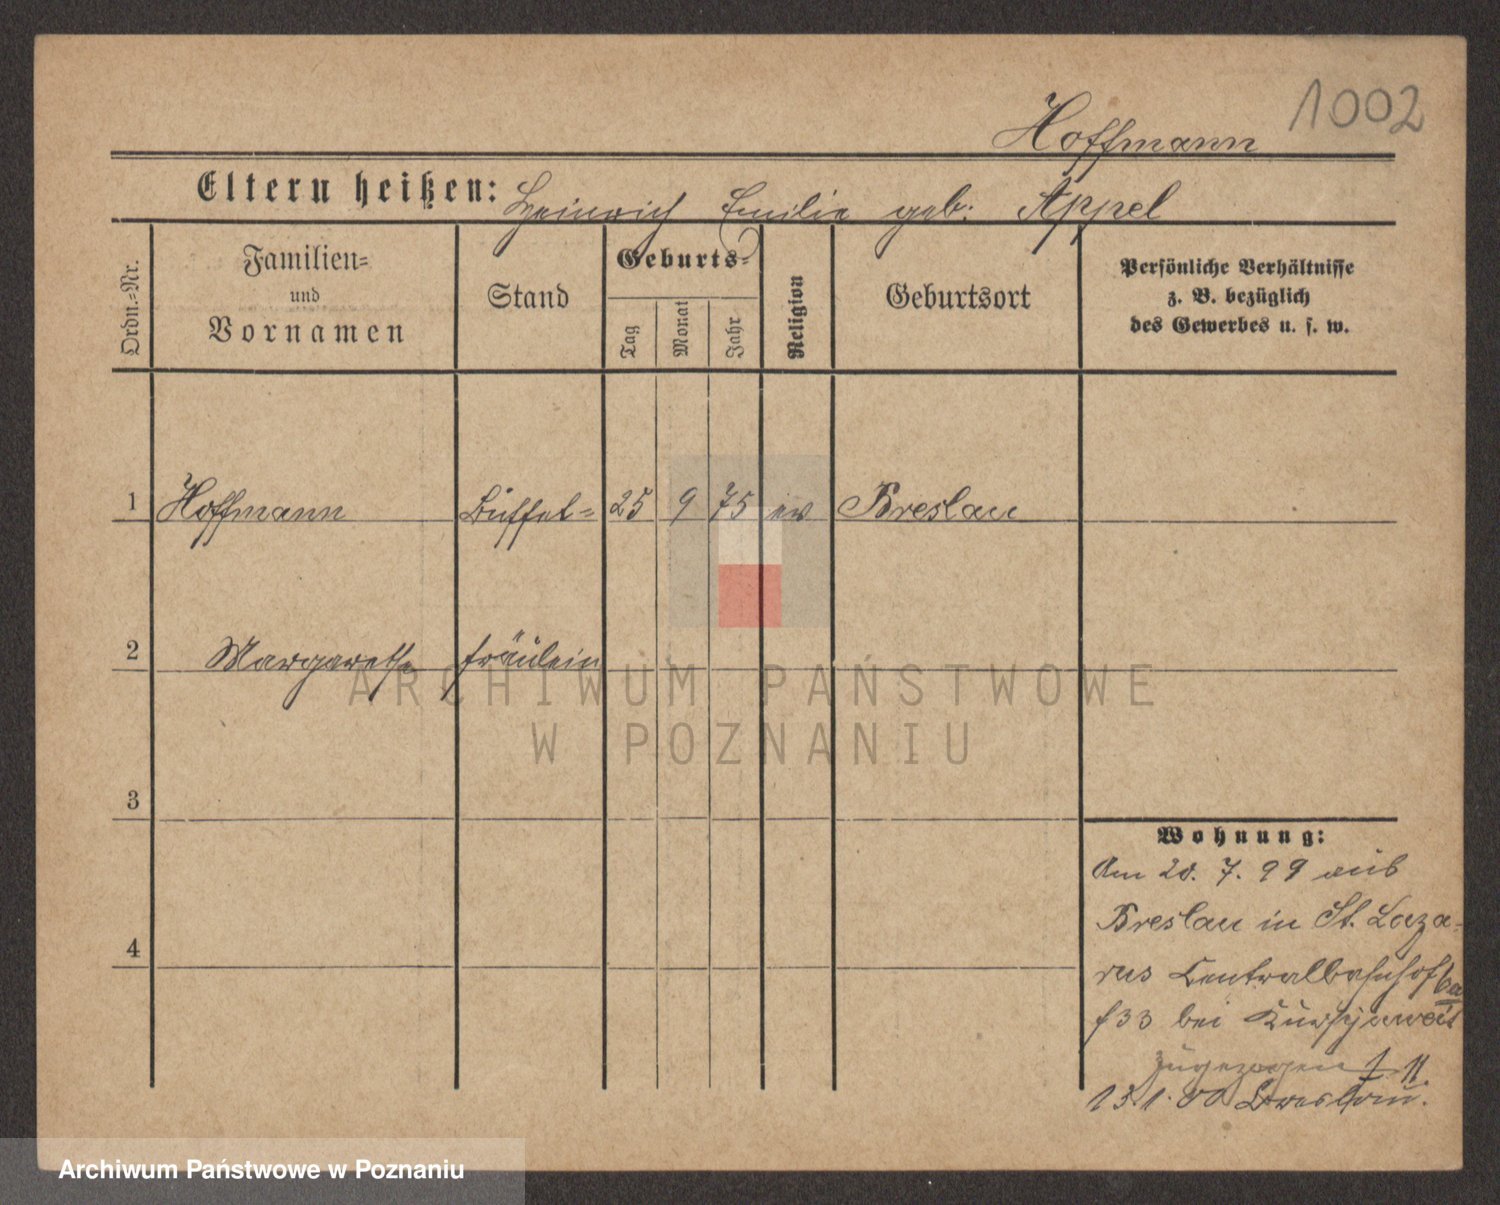 1002
Hoffmann
Eltern heißen: Heinrich Emilie geb: Appel
Ordn.=Nr.
Familien=
und
Vornamen
Stand
Geburts=
Tag
Monat
Jahr
Religion
Geburtsort
Persönliche Verhältnisse
z. B. bezüglich
des Gewerbes u. s. w.
1 Hoffmann Buffet= 25 9 75 ev Breslau
2 Margarethe fräulein
3
4
Wohnung:
Am 20. 7. 99 aus
Breslau in St. Laza-
rus Centralbahnhof
f 33 bei
zugezogen
13.1.00 Breslau.
ARCHIWUM PAŃSTWOWE
W POZNANIU
Archiwum Państwowe w Poznaniu